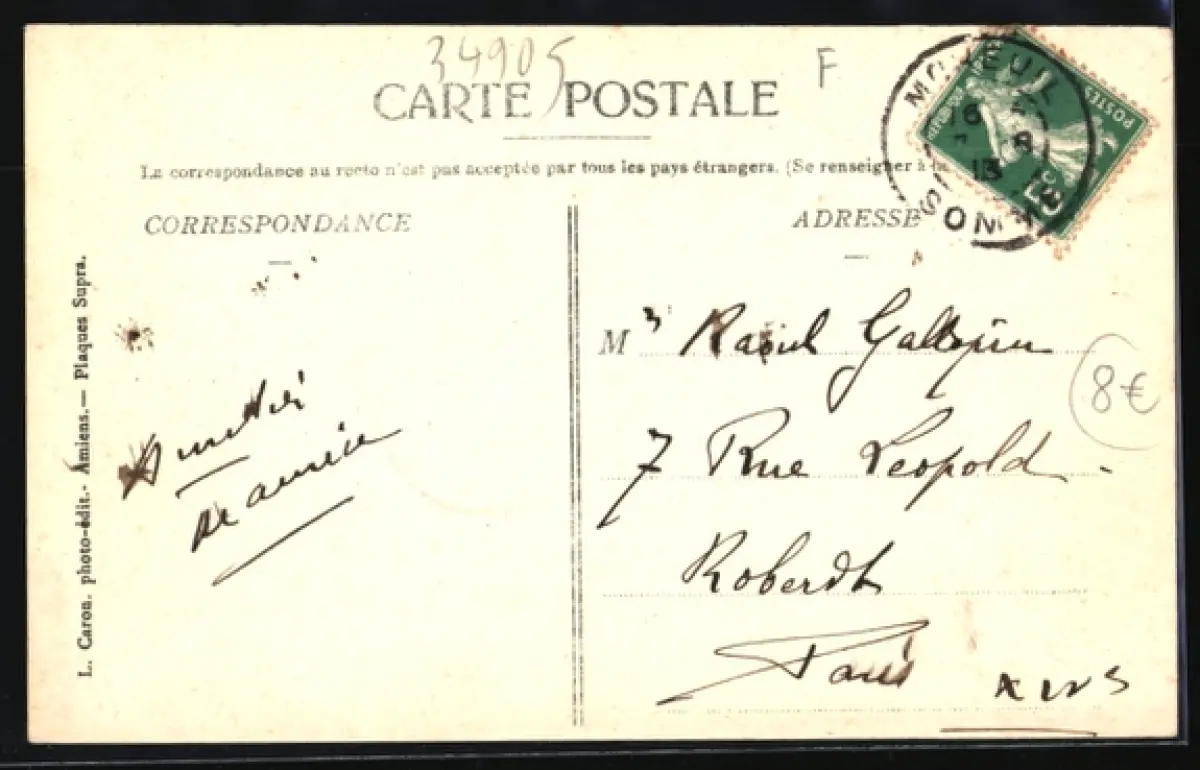 34905
F
CARTE POSTALE
La correspondance au recto n'est pas acceptée par tous les pays étrangers. (Se renseigner à la
CORRESPONDANCE
ADRESSE
POSTES
SOMME
16
8
13
L. Caron. photo-édit.- Amiens.— Plaques Supra.
Amitié
M r Raoul
7 Rue Leopold
Robert
Paris
8€